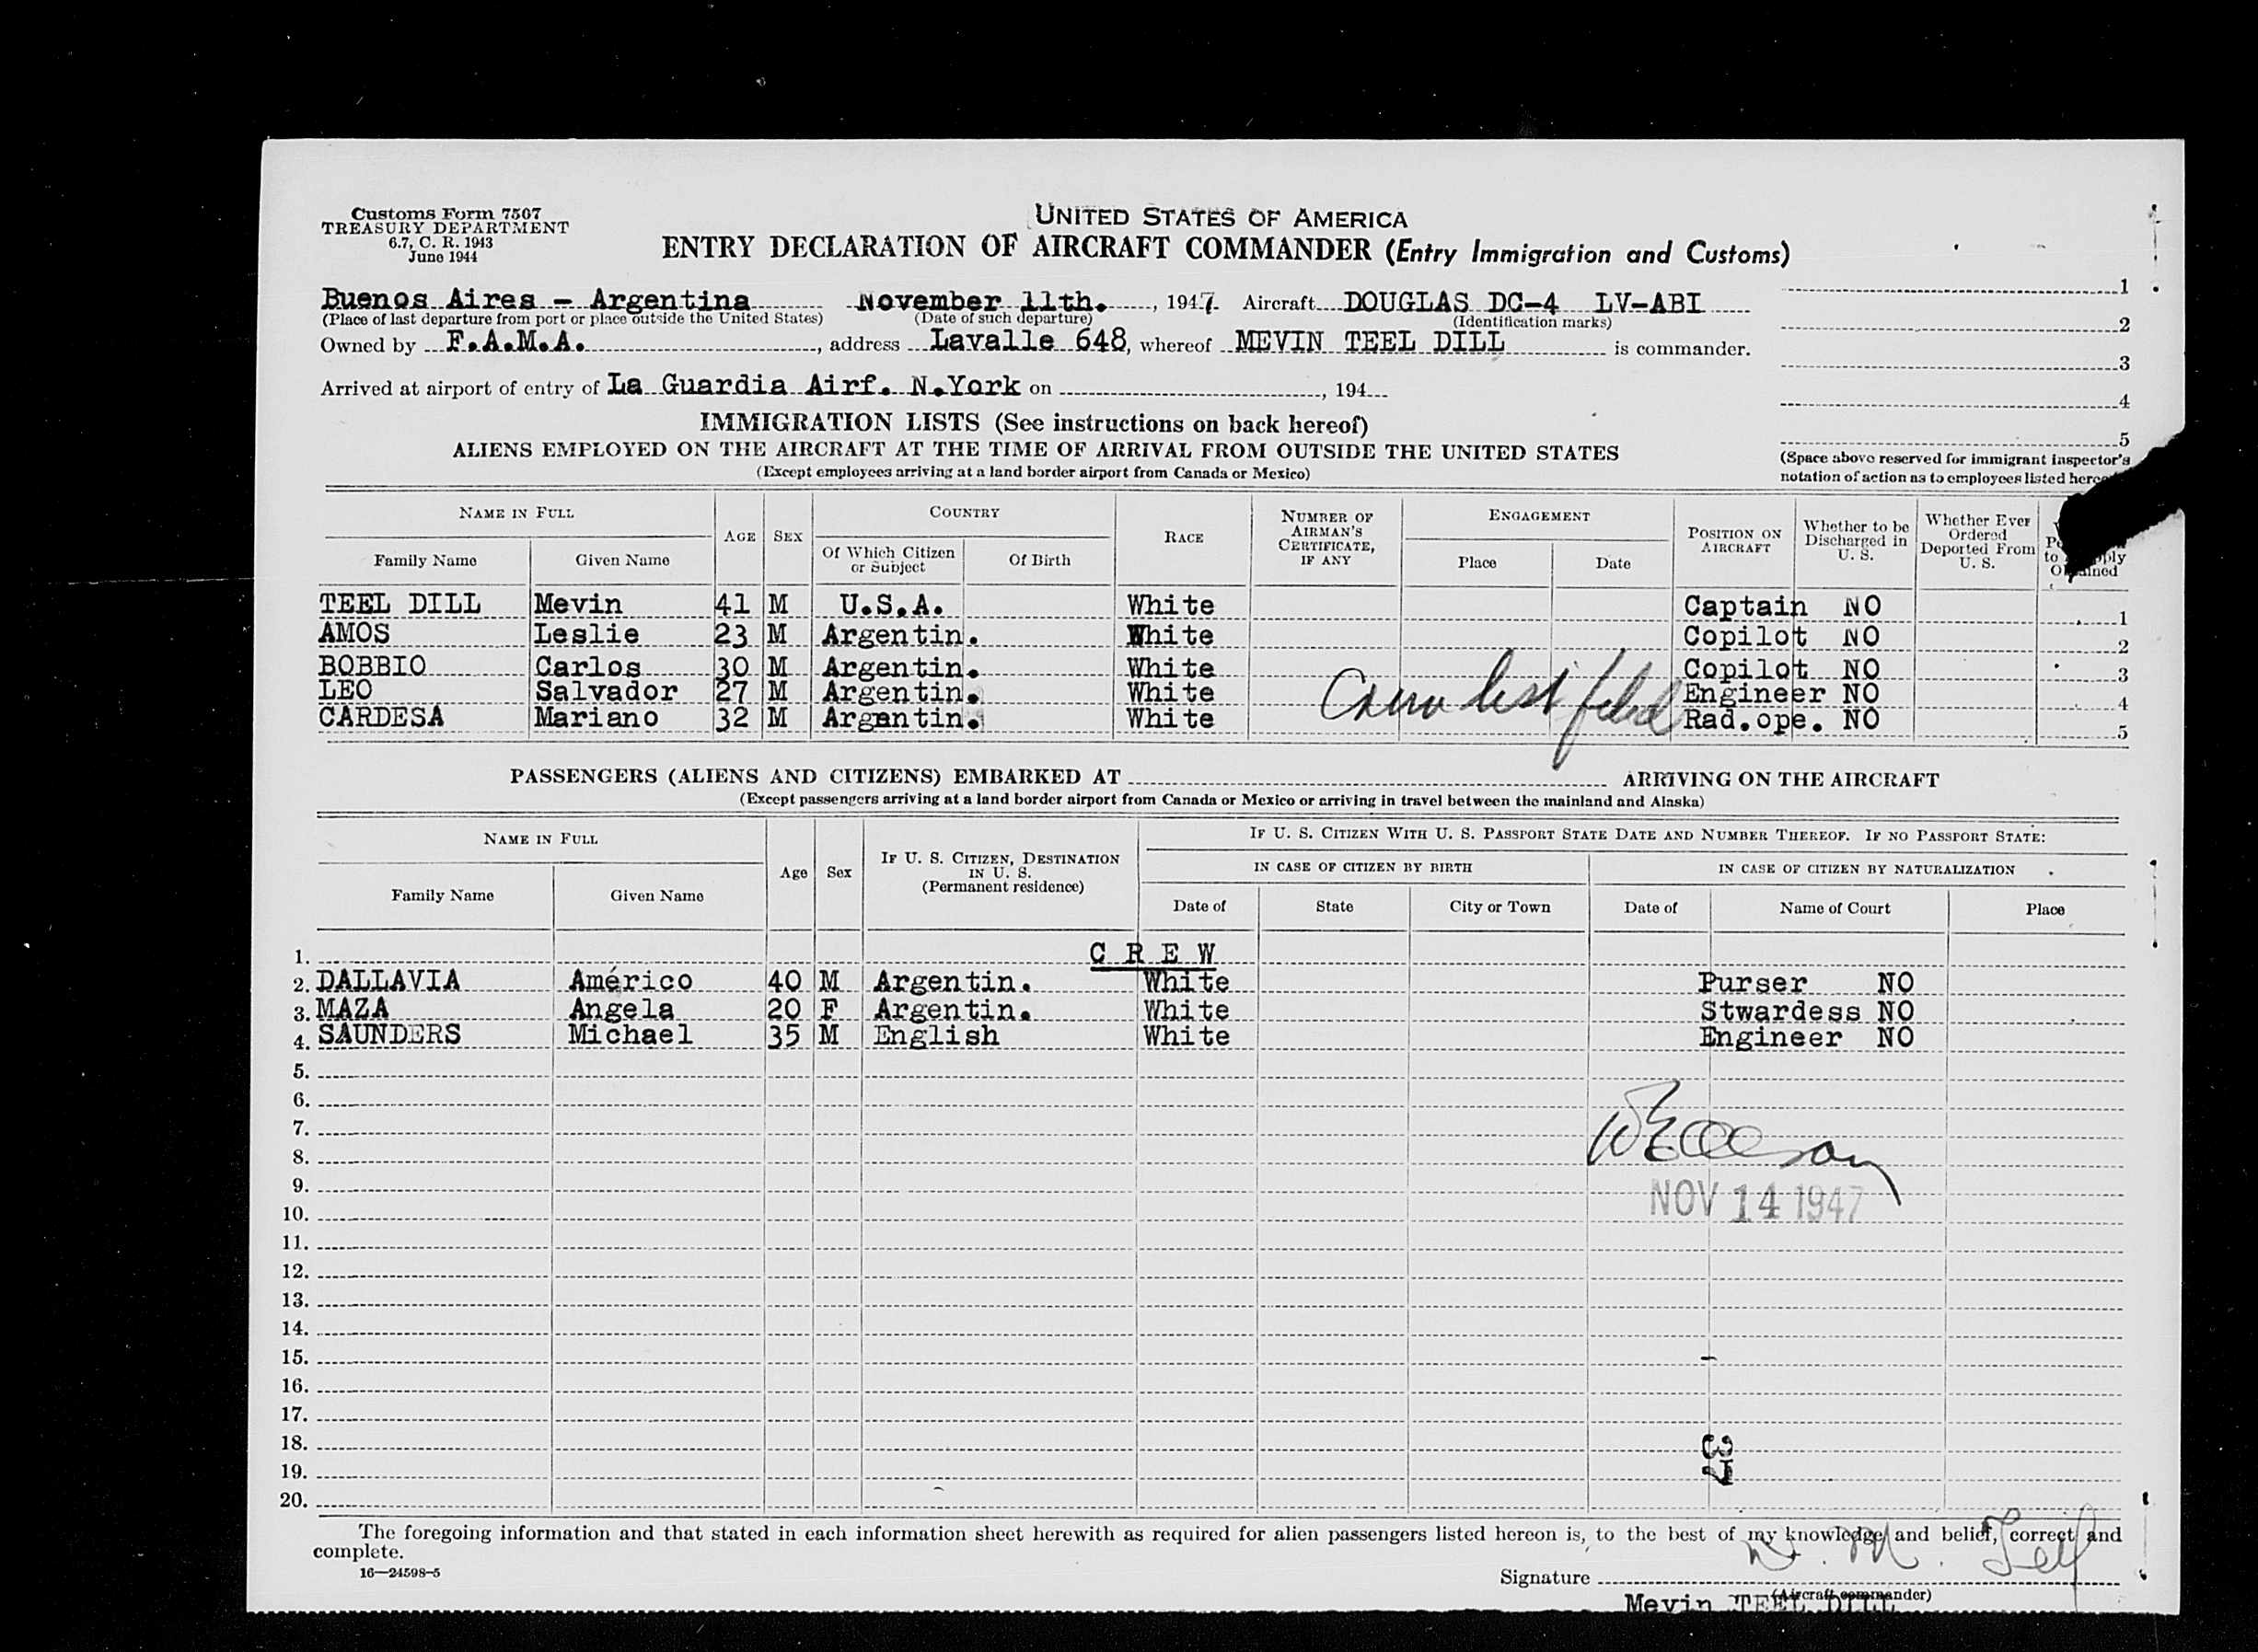 Customs Form 7507
TREASURY DEPARTMENT
6.7, C. R. 1943
June 1944
UNITED STATES OF AMERICA
ENTRY DECLARATION OF AIRCRAFT COMMANDER (Entry Immigration and Customs)
Buenos Aires - Argentina November 11th. , 1947. Aircraft DOUGLAS DC-4 LV-ABI
(Place of last departure from port or place outside the United States) (Date of such departure) (Identification marks)
Owned by F.A.M.A. , address Lavalle 648, whereof MEVIN TEEL DILL is commander.
Arrived at airport of entry of La Guardia Airf. N.York on , 194
1
2
3
4
5
(Space above reserved for immigrant inspector's
notation of action as to employees listed
IMMIGRATION LISTS (See instructions on back hereof)
ALIENS EMPLOYED ON THE AIRCRAFT AT THE TIME OF ARRIVAL FROM OUTSIDE THE UNITED STATES
(Except employees arriving at a land border airport from Canada or Mexico)
NAME IN FULL AGE SEX COUNTRY RACE NUMBER OF AIRMAN'S CERTIFICATE, IF ANY ENGAGEMENT POSITION ON AIRCRAFT Whether to be Discharged in U. S. Whether Ever Ordered Deported From U. S.
Family Name Given Name Of Which Citizen or Subject Of Birth Place Date
TEEL DILL Mevin 41 M U.S.A. White Captain NO 1
AMOS Leslie 23 M Argentin. White Copilot NO 2
BOBBIO Carlos 30 M Argentin. White Copilot NO 3
LEO Salvador 27 M Argentin. White Engineer NO 4
CARDESA Mariano 32 M Argentin. White Rad.ope. NO 5
Crew list filed
PASSENGERS (ALIENS AND CITIZENS) EMBARKED AT ARRIVING ON THE AIRCRAFT
(Except passengers arriving at a land border airport from Canada or Mexico or arriving in travel between the mainland and Alaska)
NAME IN FULL Age Sex IF U. S. CITIZEN, DESTINATION IN U. S. (Permanent residence) IF U. S. CITIZEN WITH U. S. PASSPORT STATE DATE AND NUMBER THEREOF. IF NO PASSPORT STATE:
IN CASE OF CITIZEN BY BIRTH IN CASE OF CITIZEN BY NATURALIZATION
Family Name Given Name Date of State City or Town Date of Name of Court Place
1. C R E W
2. DALLAVIA Américo 40 M Argentin. White Purser NO
3. MAZA Angela 20 F Argentin. White Stwardess NO
4. SAUNDERS Michael 35 M English White Engineer NO
5.
6.
7.
8.
9.
10. NOV 14 1947
11.
12.
13.
14.
15.
16.
17.
18.
19. 37
20.
The foregoing information and that stated in each information sheet herewith as required for alien passengers listed hereon is, to the best of my knowledge and belief, correct and
complete.
16—24598-5
Signature
(Aircraft commander)
Mevin TEEL DILL